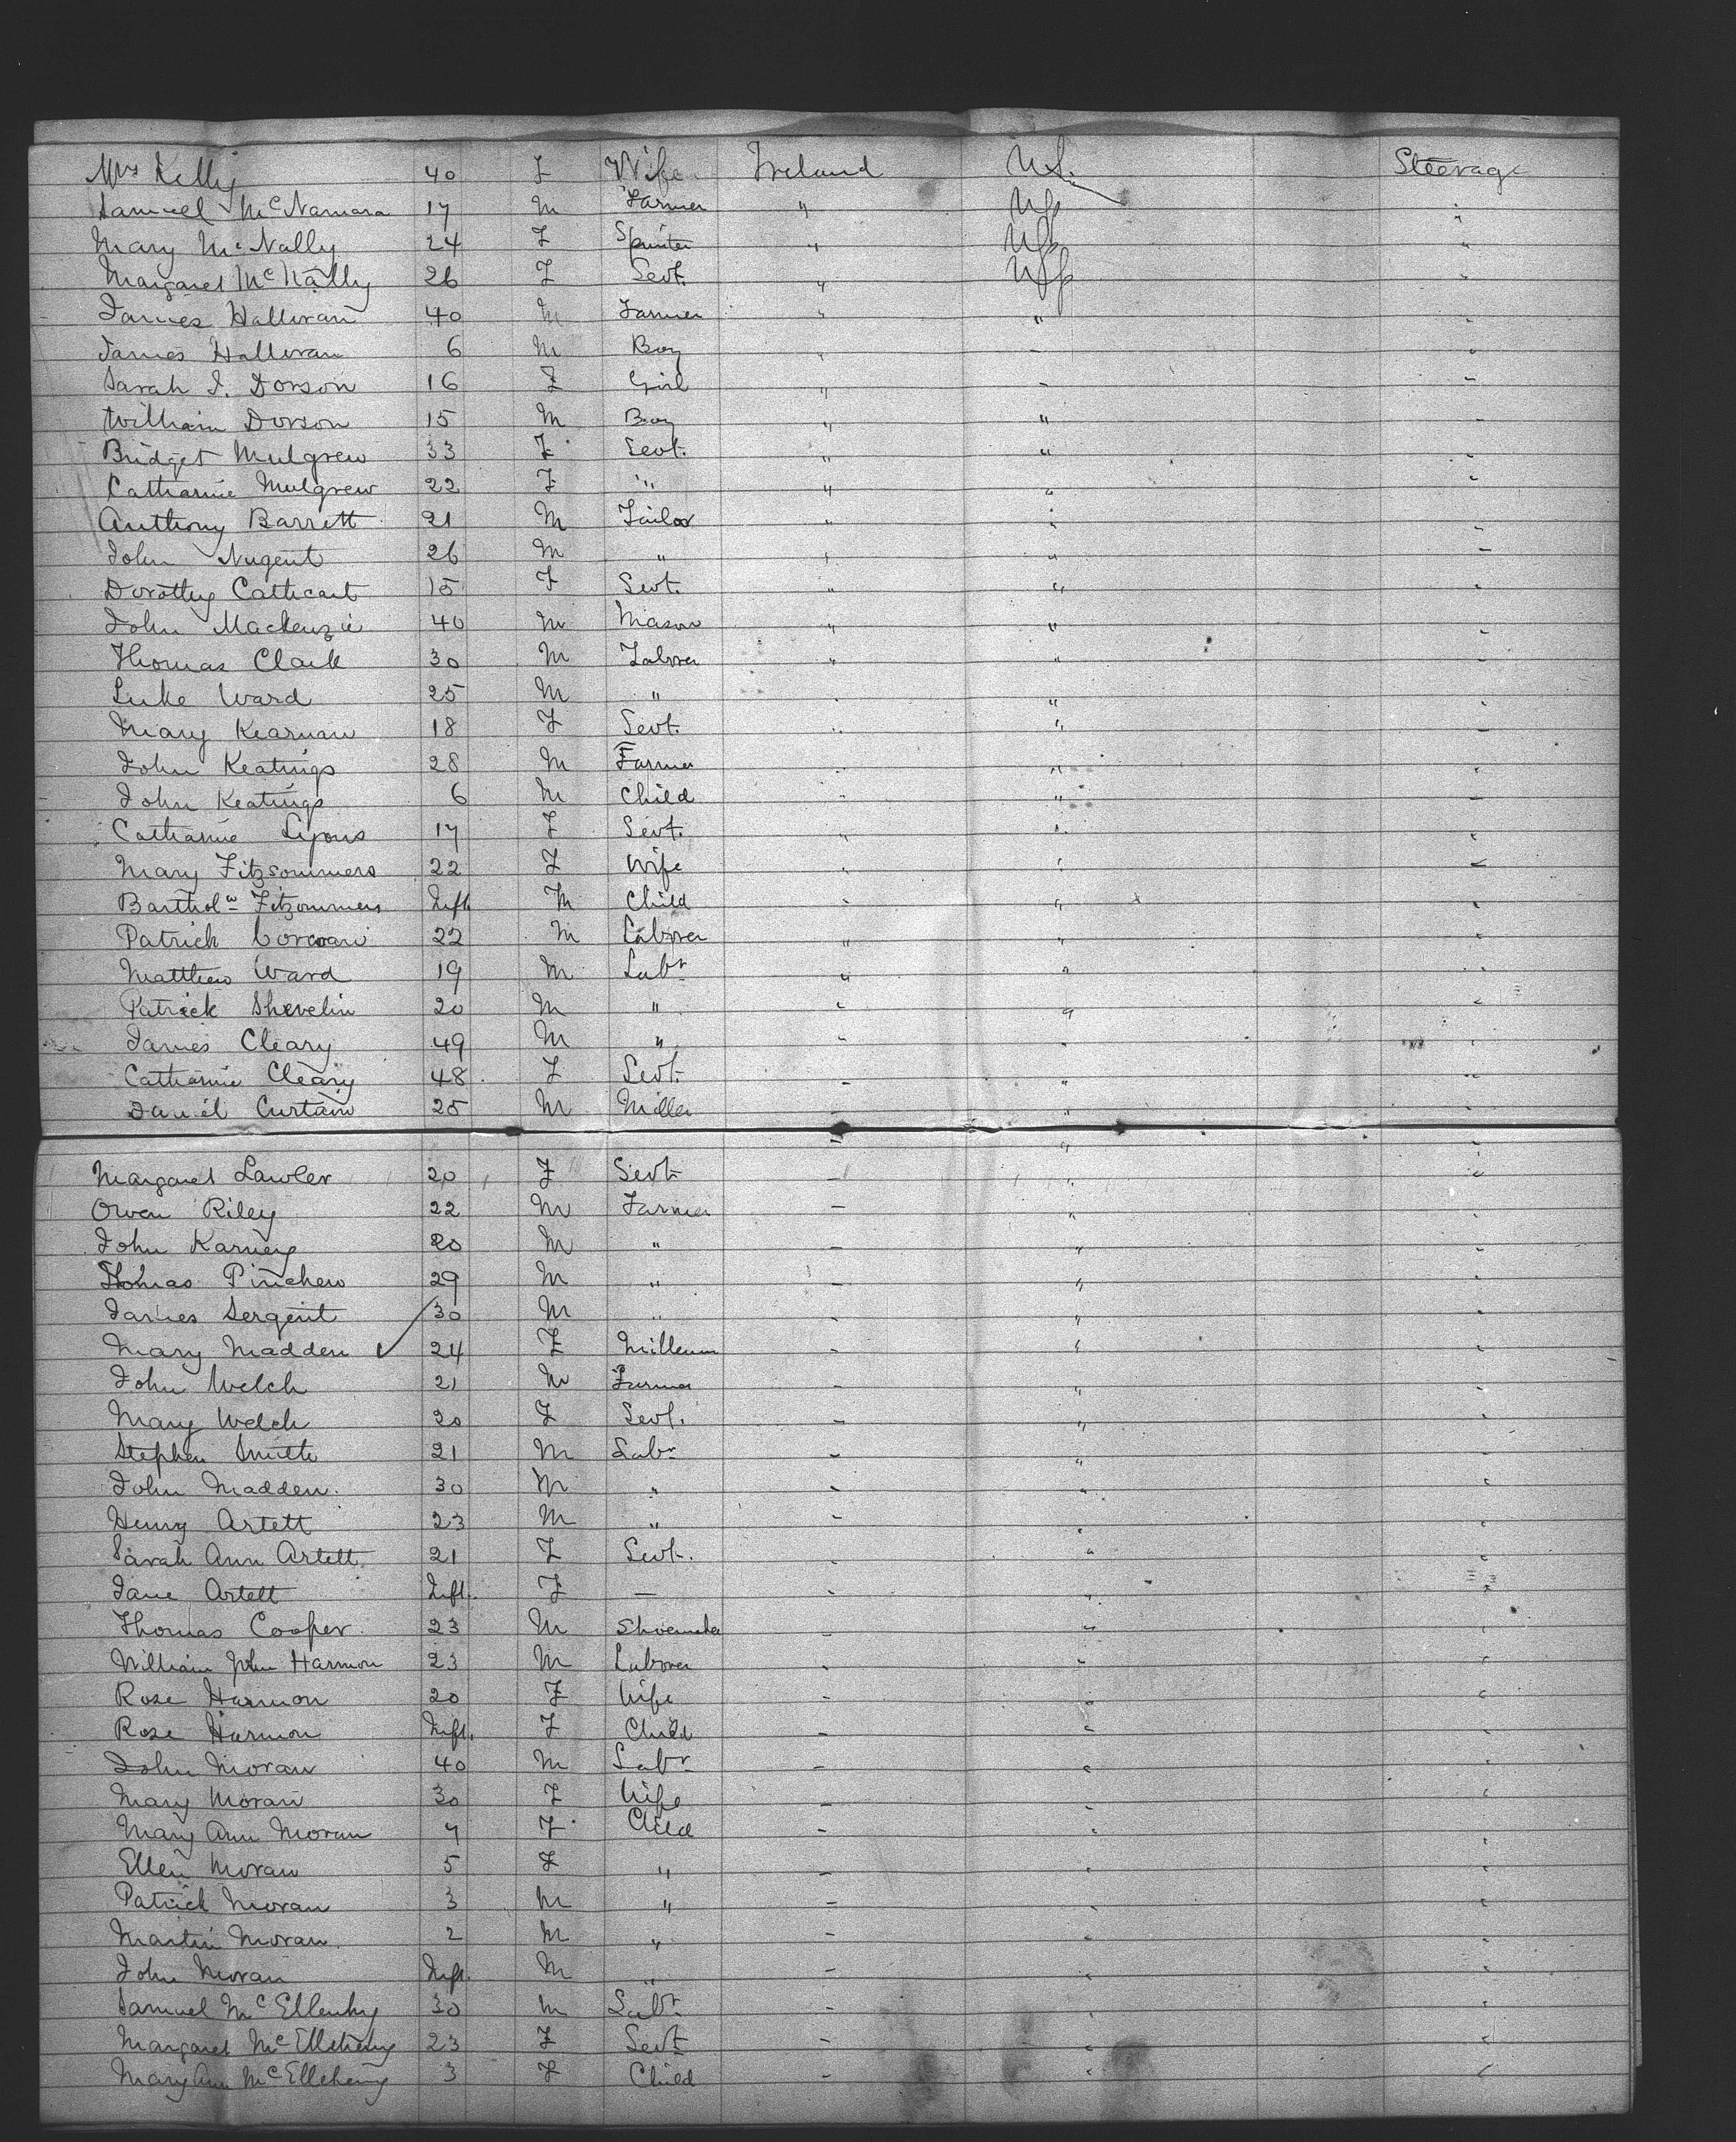 Mrs Kelly 40 F Wife Ireland U.S. Steerage
Samuel McNamara 17 M Farmer " " "
Mary McNally 24 F Spinster " " "
Margaret McNally 26 F Sevt. " " "
James Halloran 40 M Farmer " " "
James Halloran 6 M Boy " " "
Sarah J. Dorson 16 F Girl " " "
William Dorson 15 M Boy " " "
Bridget Mulgrew 33 F Sevt. " " "
Catharine Mulgrew 22 F " " " "
Anthony Barrett 21 M Tailor " " "
John Nugent 26 M " " " "
Dorothy Cathcart 15 F Sevt. " " "
John Mackenzie 40 M Mason " " "
Thomas Clark 30 M Labore " " "
Luke Ward 25 M " " " "
Mary Kearnan 18 F Sevt. " " "
John Keatings 28 M Farmer " " "
John Keatings 6 M Child " " "
Catharine Lyons 17 F Sevt. " " "
Mary Fitzsommers 22 F Wife " " "
Bartholw Fitzsommers Inft M Child " " "
Patrick Corcoran 22 M Laborer " " "
Matthew Ward 19 M Labr " " "
Patrick Shevelin 20 M " " " "
James Cleary 49 M " " " "
Catharine Cleary 48 F Sevt. " " "
Daniel Curtain 25 M Miller " " "
" " "
Margaret Lawler 20 F Sevt " " "
Owen Riley 22 M Farmer " " "
John Karney 20 M " " " "
Thomas Pinchew 29 M " " " "
James Sergent 30 M " " " "
Mary Madden ✓ 24 F " " "
John Welch 21 M Farmer " " "
Mary Welch 20 F Sevt. " " "
Stephen Smith 21 M Labr " " "
John Madden 30 M " " " "
Henry Artett 23 M " " " "
Sarah Ann Artett 21 F Sevt. " " "
Jane Artett Inft. F — " " "
Thomas Cooper 23 M Shoemaker " " "
William John Harmon 23 M Laborer " " "
Rose Harmon 20 F Wife " " "
Rose Harmon Inft. F Child " " "
John Moran 40 M Labr " " "
Mary Moran 30 F Wife " " "
Mary Ann Moran 7 F Child " " "
Ellen Moran 5 F " " " "
Patrick Moran 3 M " " " "
Martin Moran 2 M " " " "
John Moran Inft. M " " " "
Samuel McEllenhy 30 M Labr " " "
Margaret McElleheny 23 F Sevt " " "
Mary Ann McElleheny 3 F Child " " "